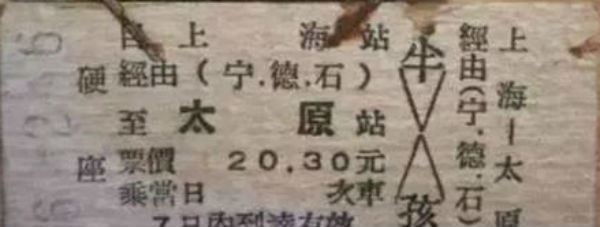 自上海站
經由(宁.德.石)
至太原站
硬座
票價20.30元
乘當日次車
7日内到達有效
半
孩
上海—太原
經由(宁.德.石)